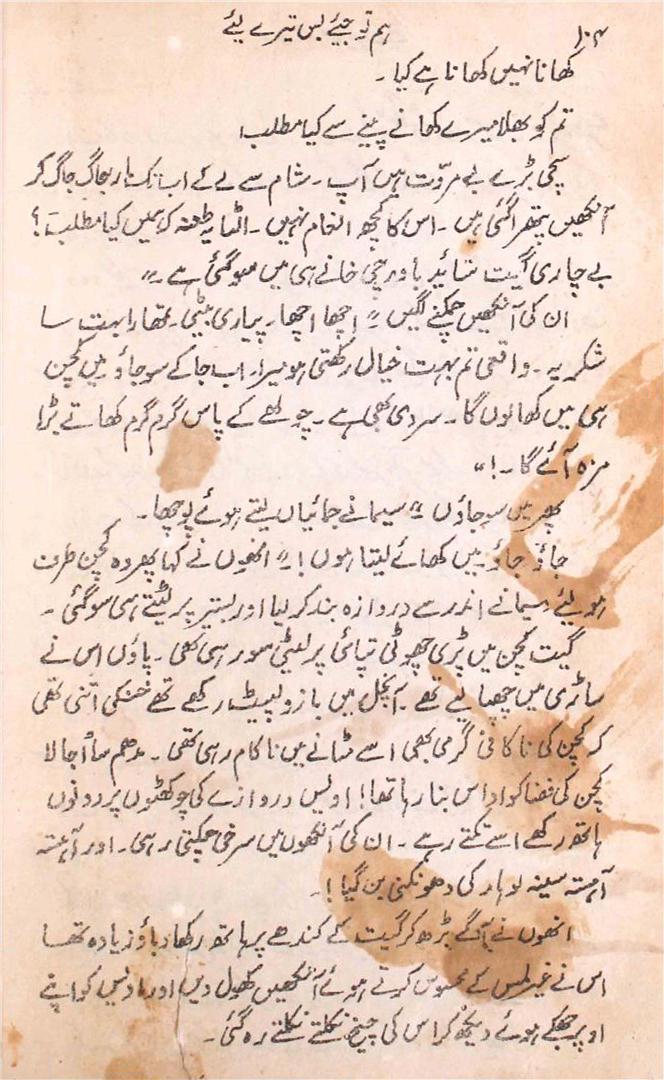 ۱۰۴
ہم تو جیئے بس تیرے لیئے
کھانا نہیں کھانا ہے کیا ۔
تم کو بھلا میرے کھانے پینے سے کیا مطلب،
سچی بڑے بے مروّت ہیں آپ ۔ شام سے لے کے اب تک تار جاگ جاگ کر
آنکھیں پتھرا گئی ہیں ۔ اس کا کچھ انعام نہیں ۔ الٹا یہ طعنہ کہ ہمیں کیا مطلب ؟
بے چاری گیت شائید باورچی خانے ہی میں سو گئی ہے ۔"
ان کی آنکھیں چمکنے لگیں " اچھا اچھا ۔ پیاری بیٹی ۔ تمھارا بہت سا
شکریہ ۔ واقعی تم بہت خیال رکھتی ہو میرا ۔ اب جا کے سو جاؤ میں کچن
ہی میں کھا لوں گا ۔ سردی بھی ہے ۔ چولھے کے پاس گرم گرم کھاتے بڑا
مزہ آئے گا ۔!"
پھر میں سو جاؤں " سیما نے جمائیاں لیتے ہوئے پوچھا ۔
جاؤ جاؤ ۔ میں کھائے لیتا ہوں !" انھوں نے کہا پھر وہ کچن طرف
ہو لیئے ۔ سیما نے اندر سے دروازہ بند کر لیا اور بستر پر لیٹتے ہی سو گئی ۔
گیت کچن میں پڑی چھوٹی تپائی پر لیٹی سو رہی تھی ۔ پاؤں اس نے
ساڑی میں چھپا لیے تھے ۔ آنچل میں بازو لپیٹ رکھے تھے خنکی اتنی تھی
کہ کچن کی ناکافی گرمی بھی اسے مٹانے میں ناکام رہی تھی ۔ مدھم سا اجالا
کچن کی فضا کو اداس بنا رہا تھا ! اویس دروازے کی چوکھٹوں پر دونوں
ہاتھ رکھے اسے تکتے رہے ۔ ان کی آنکھوں میں سرخی چمکتی رہی ۔ اور آہستہ
آہستہ سینہ لوہار کی دھونکنی بن گیا !۔
انھوں نے آگے بڑھ کر گیت کے کندھے پر ہاتھ رکھا ۔ دباؤ زیادہ تھا
اس نے غیر لمس کے محسوس کرتے ہوئے آنکھیں کھول دیں اور اویس کو اپنے
اوپر جھکے ہوئے دیکھ کر اس کی چیخ نکلتے نکلتے رہ گئی ۔